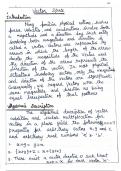 Vector Space
Introduction
Many familiar physical notions, such as
forces, velocities, and accelerations involve both
magnitude and direction. Any such entity
involving both magnitude and direction is
called a vector. Vectors are represented by
arrows in which the length of the arrow
denotes the magnitude of the vector and
the direction of the arrow represents the
direction of the vector. In most physical
situations involving vectors, only the magnitude
and direction of the vector are significant;
consequently, we regard vectors with the
same magnitude and direction as being
equal irrespective of their positions.
Algebraic Description
The algebraic description of vector
addition and scalar multiplication for
vectors in a plane yield the following
properties for arbitrary vectors x, y and z
and arbitrary real numbers a and b:
1. x+y = y+x
2. (x+y)+z = x+(y+z)
3. There exist a vector denoted 0 such that
x+0 = x for each vector x.